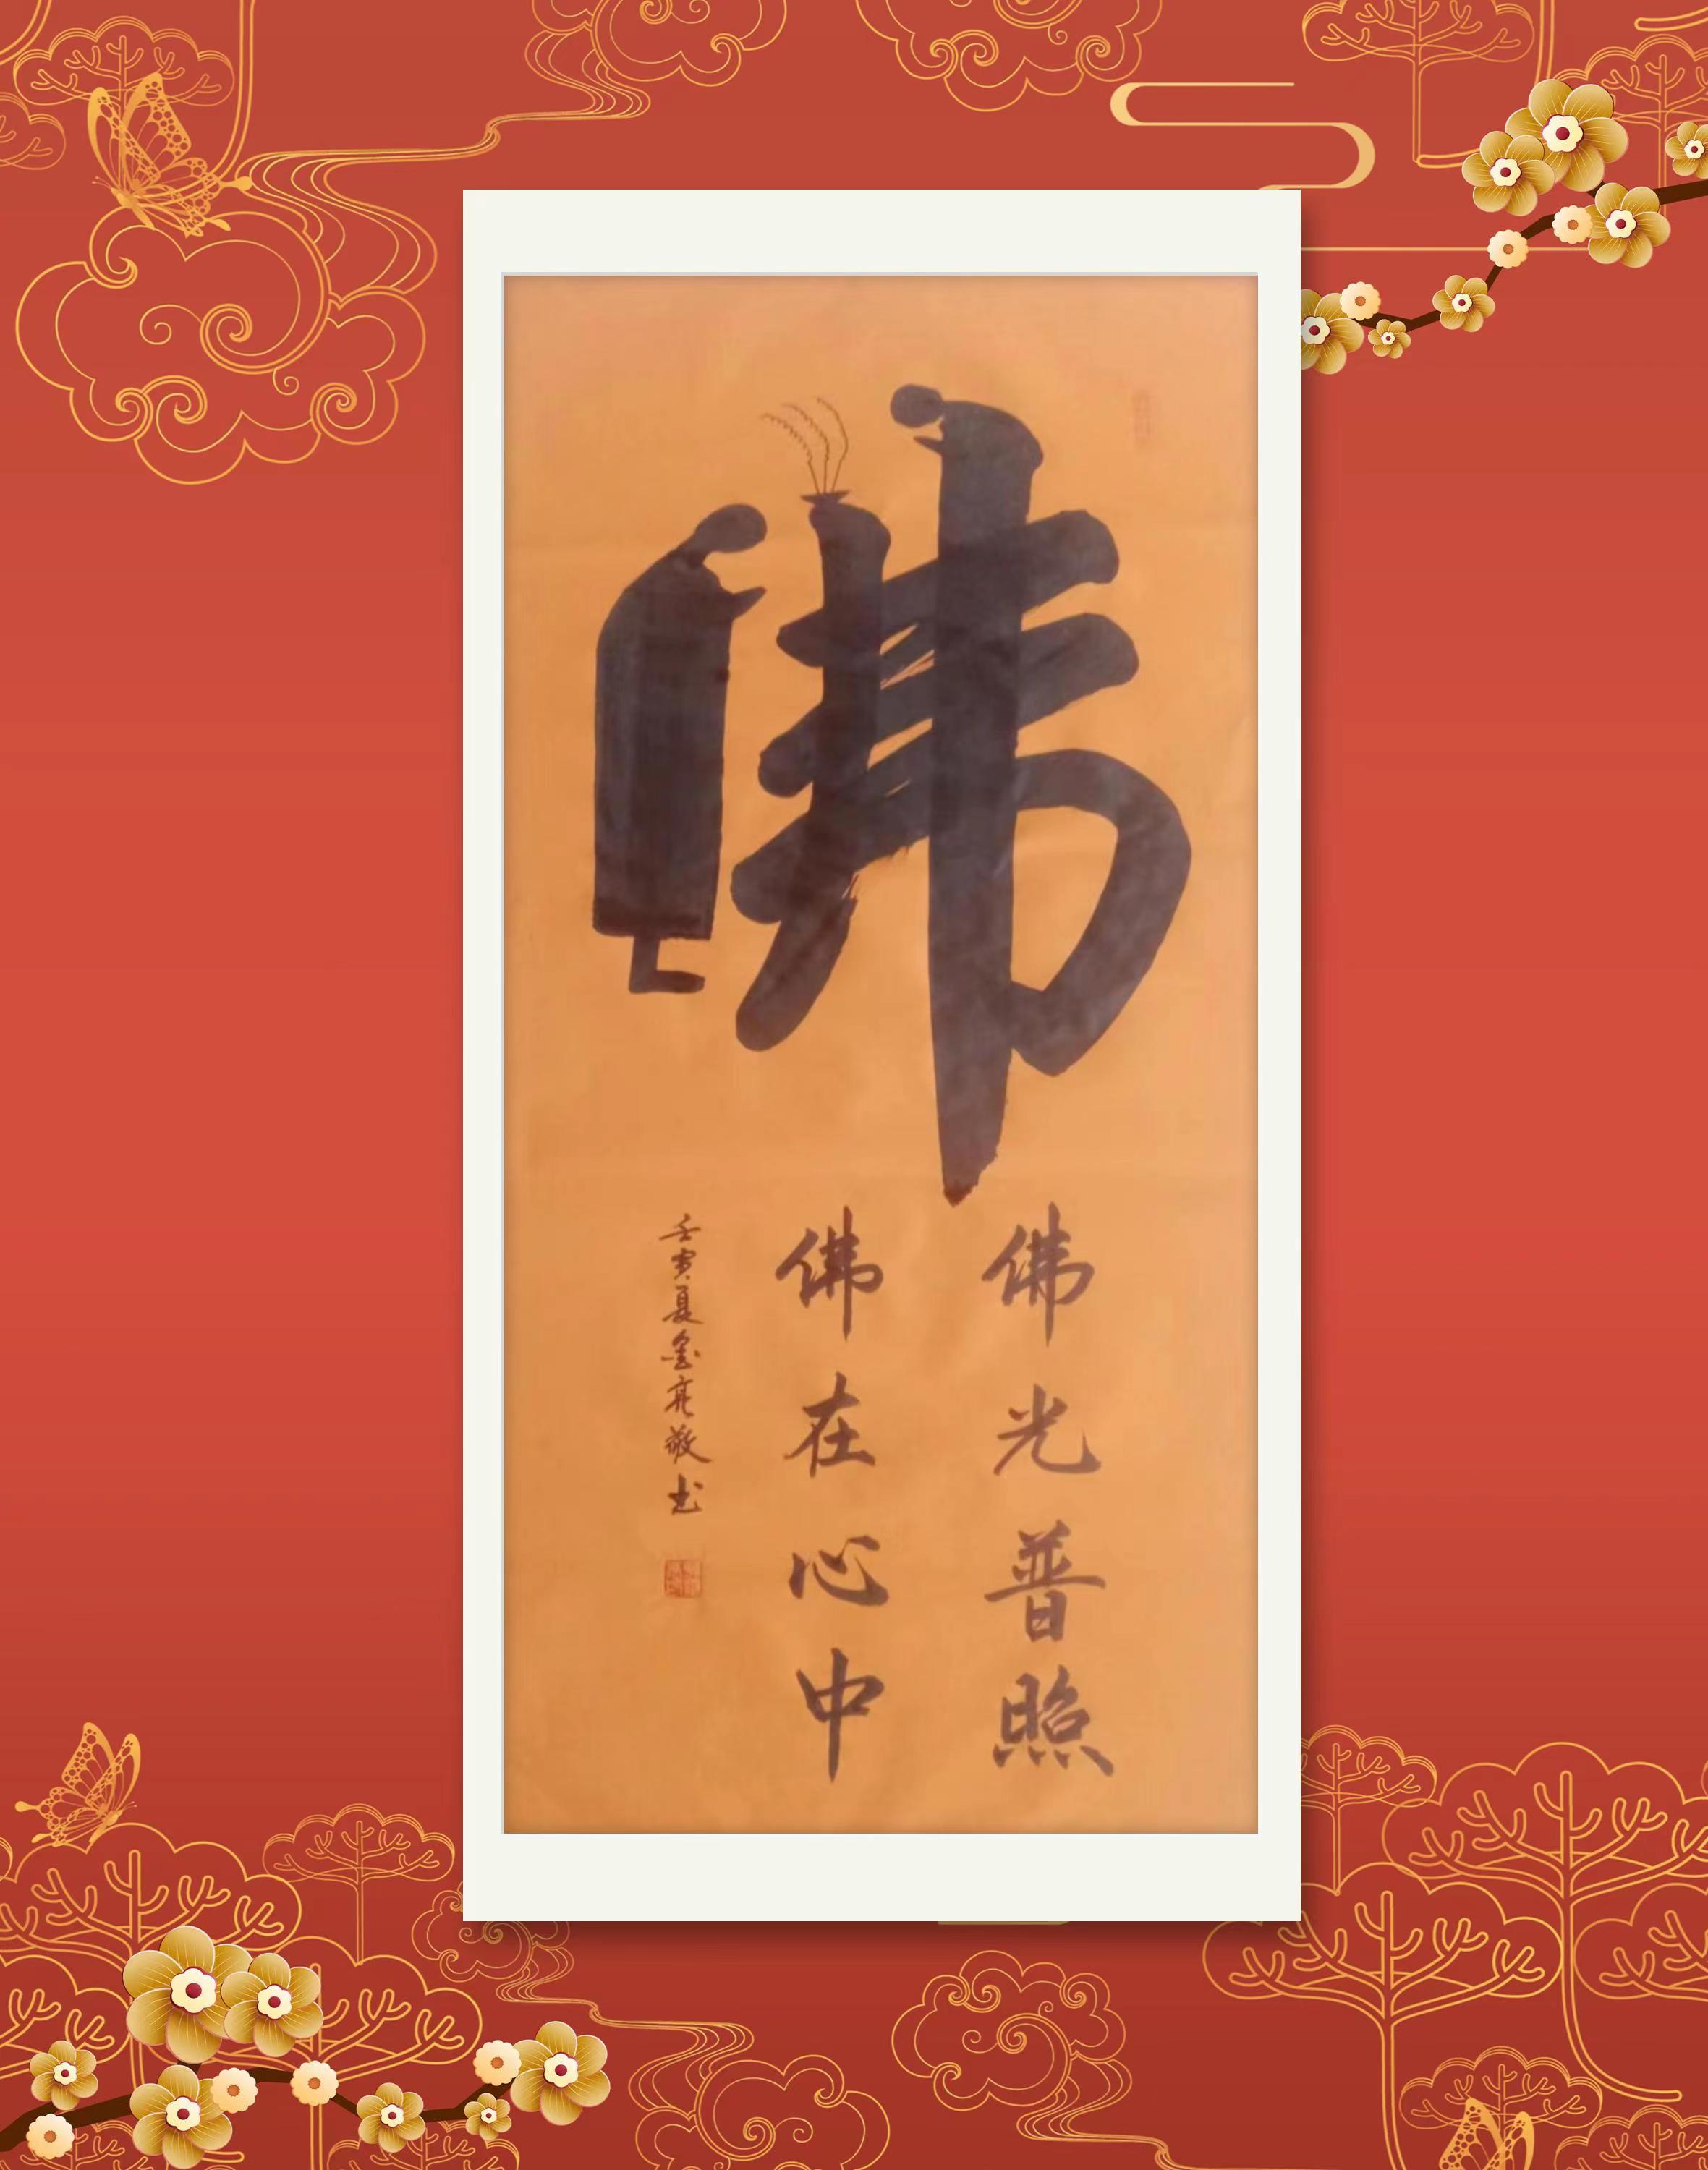 佛
佛光普照
佛在心中
壬寅夏金亮敬书